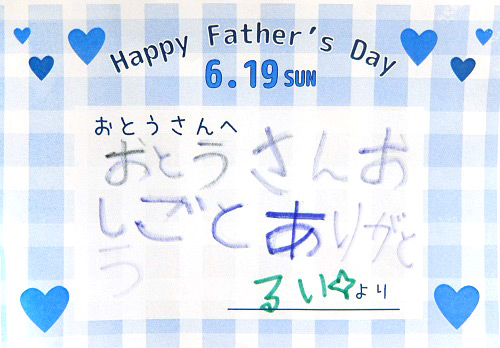 Happy Father's Day
6.19 SUN
おとうさんへ
おとうさんお
しごとありがと
う
るい より